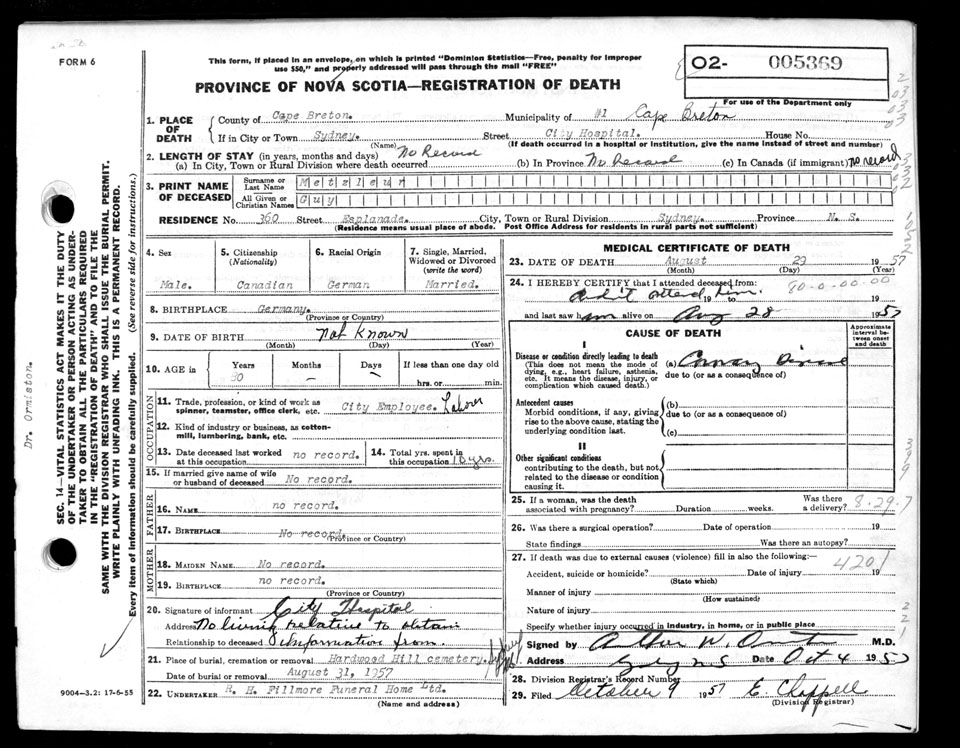 FORM 6
This form, if placed in an envelope, on which is printed "Dominion Statistics—Free, penalty for improper
use $50," and properly addressed will pass through the mail "FREE"
PROVINCE OF NOVA SCOTIA—REGISTRATION OF DEATH
02- 005369
For use of the Department only
1. PLACE OF DEATH
County of Cape Breton. Municipality of #1 Cape Breton
If in City or Town Sydney. Street City Hospital. House No.
(Name) (If death occurred in a hospital or institution, give the name instead of street and number)
2. LENGTH OF STAY (in years, months and days)
(a) In City, Town or Rural Division where death occurred No Record (b) In Province No Record (c) In Canada (if immigrant) no record
3. PRINT NAME OF DECEASED
Surname or Last Name Metzleur
All Given or Christian Names Guy
RESIDENCE No. 360 Street Esplanade. City, Town or Rural Division Sydney. Province N. S.
(Residence means usual place of abode. Post Office Address for residents in rural parts not sufficient)
4. Sex
Male.
5. Citizenship (Nationality)
Canadian
6. Racial Origin
German
7. Single, Married, Widowed or Divorced (write the word)
Married.
8. BIRTHPLACE Germany.
(Province or Country)
9. DATE OF BIRTH Not Known
(Month) (Day) (Year)
10. AGE in Years Months Days If less than one day old
80 — — hrs. or min.
OCCUPATION
11. Trade, profession, or kind of work as
spinner, teamster, office clerk, etc. City Employee. Labor
12. Kind of industry or business, as cotton-
mill, lumbering, bank, etc.
13. Date deceased last worked
at this occupation no record.
14. Total yrs. spent in
this occupation 10 yrs.
15. If married give name of wife
or husband of deceased No record.
FATHER
16. NAME no record.
17. BIRTHPLACE No record.
(Province or Country)
MOTHER
18. MAIDEN NAME No record.
19. BIRTHPLACE no record.
(Province or Country)
20. Signature of informant City Hospital
Address No living relative to obtain
Relationship to deceased information from.
21. Place of burial, cremation or removal Hardwood Hill cemetery. Sydney
Date of burial or removal August 31, 1957
22. UNDERTAKER R. H. Fillmore Funeral Home Ltd.
(Name and address)
MEDICAL CERTIFICATE OF DEATH
23. DATE OF DEATH August 29 1957
(Month) (Day) (Year)
24. I HEREBY CERTIFY that I attended deceased from:
did attend him 19 to 19
and last saw him alive on Aug 28 1957
CAUSE OF DEATH
Approximate interval between onset and death
I
Disease or condition directly leading to death
(This does not mean the mode of
dying, e.g., heart failure, asthenia,
etc. It means the disease, injury, or
complication which caused death.)
(a)
due to (or as a consequence of)
Antecedent causes
Morbid conditions, if any, giving
rise to the above cause, stating the
underlying condition last.
(b)
due to (or as a consequence of)
(c)
II
Other significant conditions
contributing to the death, but not
related to the disease or condition
causing it.
25. If a woman, was the death
associated with pregnancy? Duration weeks. Was there
a delivery? 8.29.7
26. Was there a surgical operation? Date of operation 19
State findings Was there an autopsy?
27. If death was due to external causes (violence) fill in also the following:
Accident, suicide or homicide? Date of injury 19
(State which)
4201
Manner of injury
(How sustained)
Nature of injury
Specify whether injury occurred in industry, in home, or in public place
Signed by Arthur W. Ormiston M.D.
Address Sydney N S Date Oct 4 1957
28. Division Registrar's Record Number
29. Filed October 9 1957 E. Chappell
(Division Registrar)
9004—3.2: 17-6-55
Dr. Ormiston.
SEC. 14—VITAL STATISTICS ACT MAKES IT THE DUTY
OF THE UNDERTAKER OR PERSON ACTING AS UNDER-
TAKER TO OBTAIN ALL THE PARTICULARS REQUIRED
IN THE "REGISTRATION OF DEATH" AND TO FILE THE
SAME WITH THE DIVISION REGISTRAR WHO SHALL ISSUE THE BURIAL PERMIT.
WRITE PLAINLY WITH UNFADING INK. THIS IS A PERMANENT RECORD.
Every item of information should be carefully supplied. (See reverse side for instructions.)